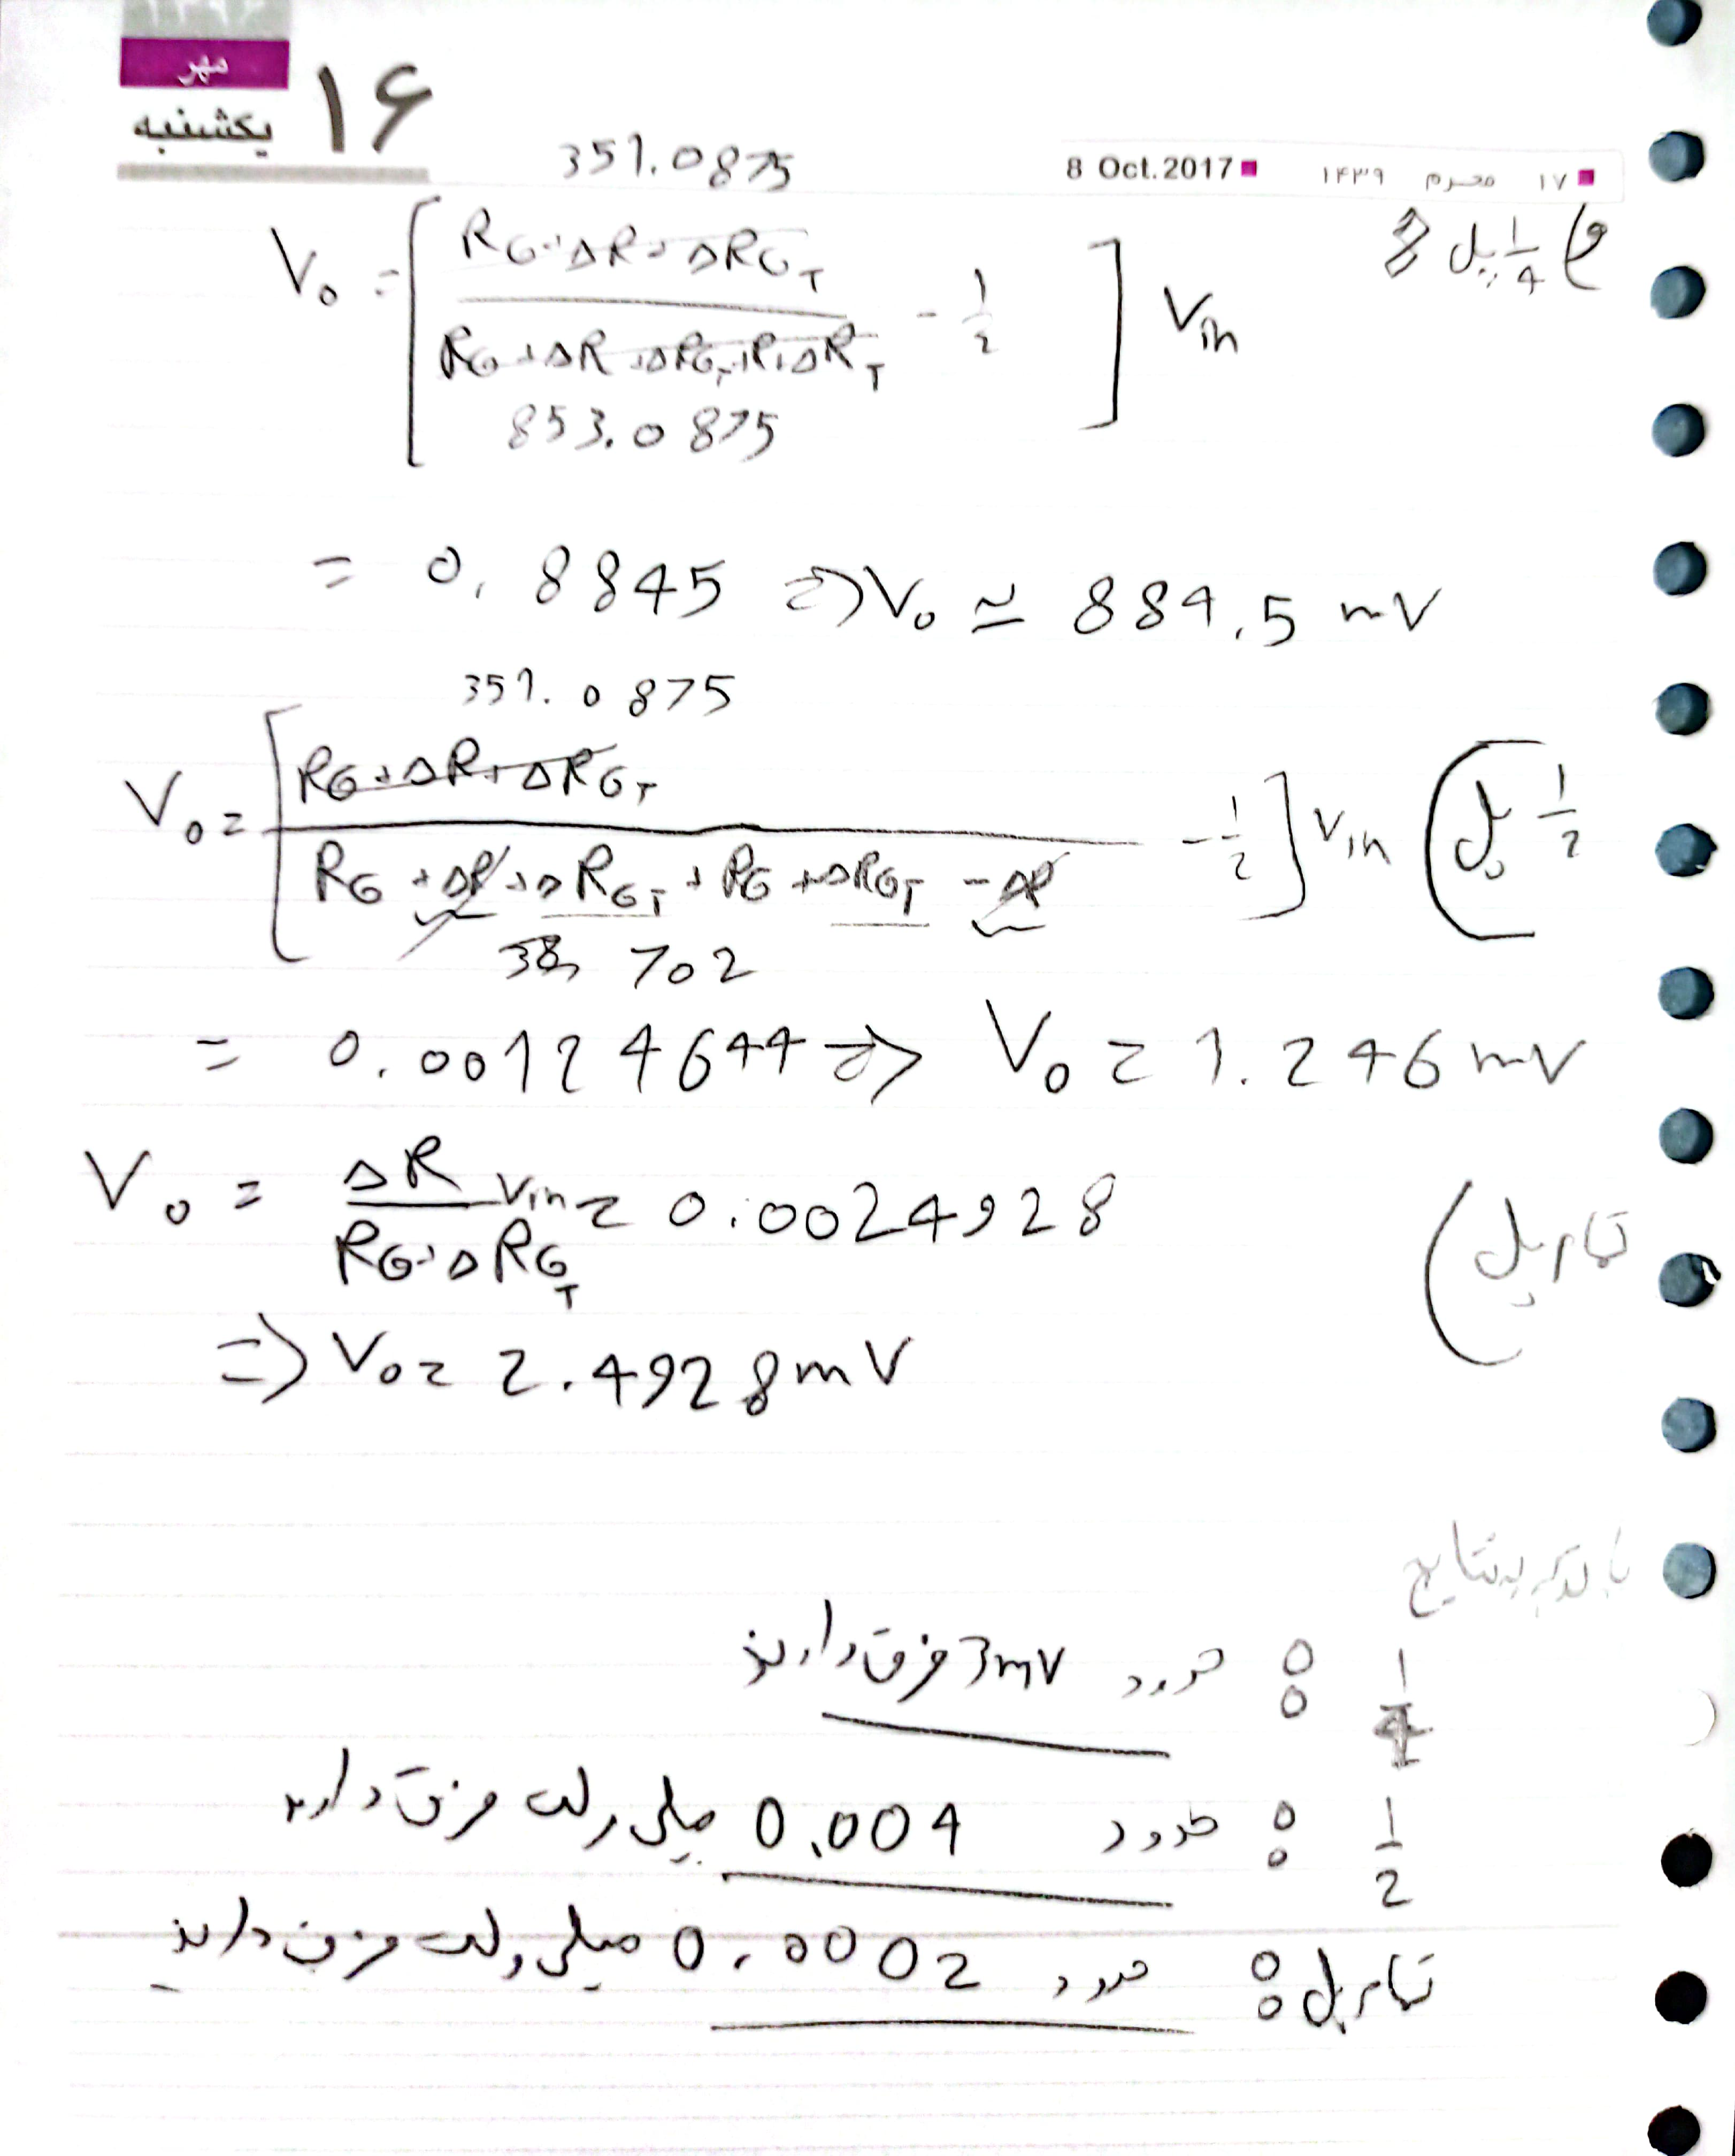 ۱۳۹۶
مهر
یکشنبه
۱۶
8 Oct. 2017 ■ ۱۴۳۹ محرم ۱۷ ■
351.0875
1/4 پل
V₀ = [ (RG + ΔR + ΔRGT) / (RG + ΔR + ΔRGT + R + ΔRT) - 1/2 ] Vin
853.0875
= 0.8845 ⇒ V₀ ≃ 884.5 mV
351.0875
V₀ = [ (RG + ΔR + ΔRGT) / (RG + ΔR + ΔRGT + RG + ΔRGT - ΔR) - 1/2 ] Vin ( 1/2 پل
702
= 0.00124644 ⇒ V₀ = 1.246 mV
V₀ = ΔR / (RG + ΔRGT) Vin = 0.0024928 ( تمام پل
⇒ V₀ = 2.4928 mV
با توجه به نتایج
1/4 : حدود 3mV فرق دارند
1/2 : حدود 0.004 میلی ولت فرق دارند
تمام پل : حدود 0.0002 میلی ولت فرق دارند